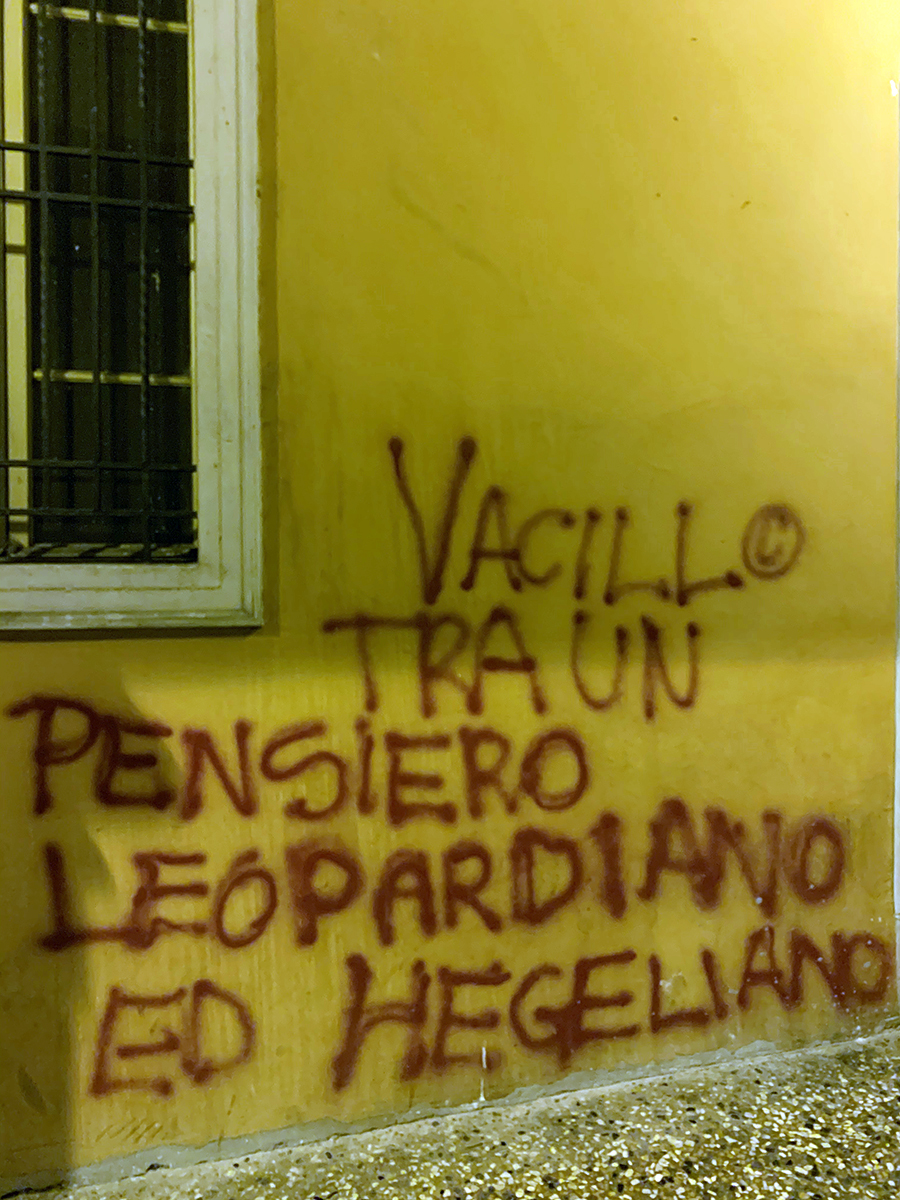 VACILLO
TRA UN
PENSIERO
LEOPARDIANO
ED HEGELIANO